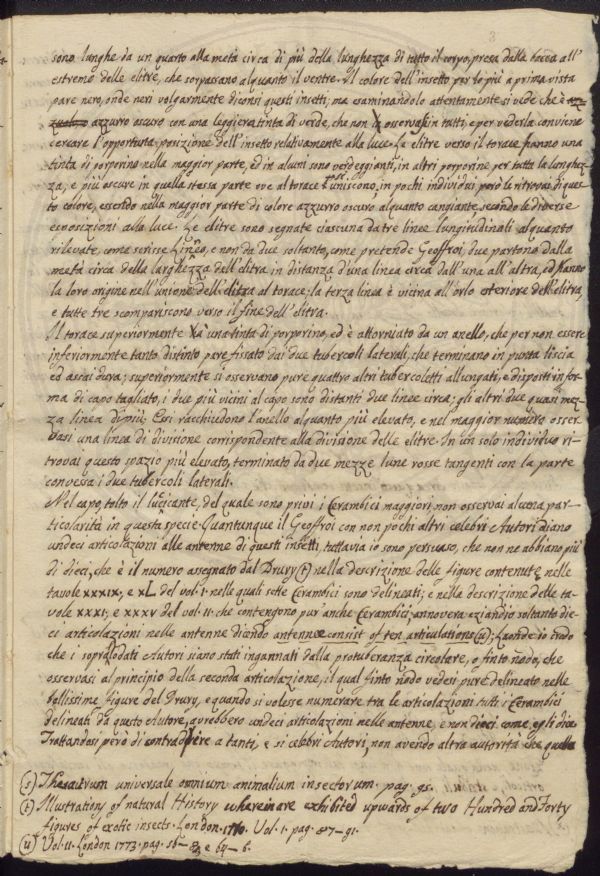 sono lunghe da un quarto alla metà circa di più della lunghezza di tutto il corpo, presa dalla bocca all'
estremo delle elitre, che sorpassano alquanto il ventre. Il colore dell'insetto per lo più a prima vista
pare nero, onde neri volgarmente diconsi questi insetti; ma esaminandolo attentamente si vede che è
azzurro oscuro con una leggiera tinta di verde, che non osservasi in tutti; e per vederla conviene
cercare l'opportuna posizione dell'insetto relativamente alla luce. Le elitre verso il torace hanno una
tinta di porporino nella maggior parte, ed in alcuni sono verdeggianti, in altri porporine per tutta la lunghez-
za, e più oscure in quella stessa parte ove al torace si uniscono, in pochi individui però le ritrovai di ques-
to colore, essendo nella maggior parte di colore azzurro oscuro alquanto cangiante, secondo le diverse
esposizioni alla luce. Le elitre sono segnate ciascuna da tre linee longitudinali alquanto
rilevate, come scrisse Linneo, e non da due soltanto, come pretende Geoffroi; due partono dalla
metà circa della larghezza dell'elitra in distanza d'una linea circa dall'una all'altra, ed hanno
la loro origine nell'unione dell'elitra al torace; la terza linea è vicina all'orlo esteriore dell'elitra,
e tutte tre scompariscono verso il fine dell'elitra.
Il torace superiormente ha una tinta di porporino, ed è attorniato da un anello, che per non essere
inferiormente tanto distinto pare fissato dai due tubercoli laterali, che terminano in punta liscia
ed assai dura; superiormente si osservano pure quattro altri tubercoletti allungati, e disposti in for-
ma di capo tagliato, i due più vicini al capo sono distanti due linee circa; gli altri due quasi mez-
za linea di più. Essi racchiudono l'anello alquanto più elevato, e nel maggior numero osser-
vasi una linea di divisione corrispondente alla divisione delle elitre. In un solo individuo ri-
trovai questo spazio più elevato, terminato da due mezze lune rosse tangenti con la parte
convessa i due tubercoli laterali.
Nel capo, tolto il lucicante, del quale sono privi i Cerambici maggiori non osservai alcuna par-
ticolarità in questa specie. Quantunque il Geoffroi con non pochi altri celebri Autori diano
undeci articolazioni alle antenne di questi insetti, tuttavia io sono persuaso, che non ne abbiano più
di dieci, che è il numero assegnato dal Drury (t) nella descrizione delle figure contenute nelle
tavole XXXIX, e XL del vol. I. nelle quali sette Cerambici sono delineati; e nella descrizione delle ta-
vole XXXI, e XXXV del vol. II. che contengono pur'anche Cerambici, annovera eziandio soltanto die-
ci articolazioni nelle antenne dicendo antennæ consist of ten articulations (u); Laonde io credo
che i sopralodati Autori siano stati ingannati dalla protuberanza circolare, o finto nodo, che
osservasi al principio della seconda articolazione, il qual finto nodo vedesi pure delineato nelle
bellissime figure del Drury, e quando si volesse numerare tra le articolazioni tutti i Cerambici
delineati da questo Autore, avrebbero undeci articolazioni nelle antenne, e non dieci come egli dice
Trattandosi però di contraddire a tanti, e si celebri Autori, non avendo altra autorità che quella
(s) Theatrum universale omnium animalium insectorum. pag. 95.
(t) Illustrations of natural History wherein are exhibited upwards of two Hundred and Forty
figures of exotic insects. London. 1770. Vol. I. pag. 87-91.
(u) Vol. II. London 1773. pag. 56- e 64-